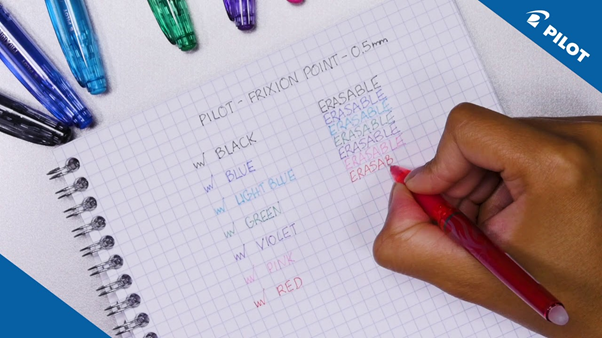 PILOT
PILOT - FRIXION POINT - 0.5mm
BLACK
BLUE
LIGHT BLUE
GREEN
VIOLET
PINK
RED
ERASABLE
ERASABLE
ERASABLE
ERASABLE
ERASABLE
ERASABLE
ERASAB